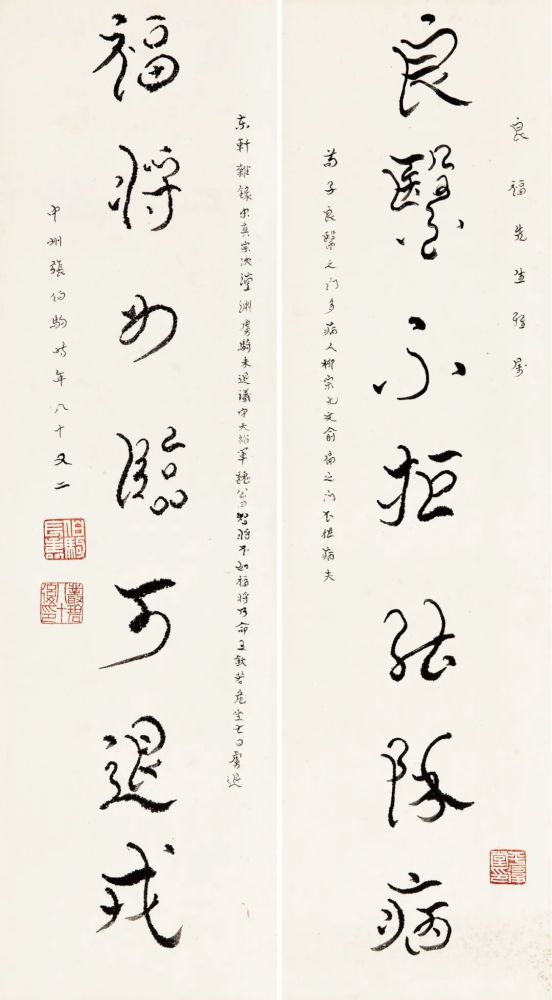 良福先生雅屬
良醫不拒能除病
荀子良醫之门多病人柳宗元文俞扁之门不拒病夫
东軒雜錄宋真宗次澶淵虜騎未退議守天雄軍魏公曰智將不如福將乃命王欽若危坐七日虜退
福將如臨可退戎
中州張伯駒時年八十又二
叢碧八十後印